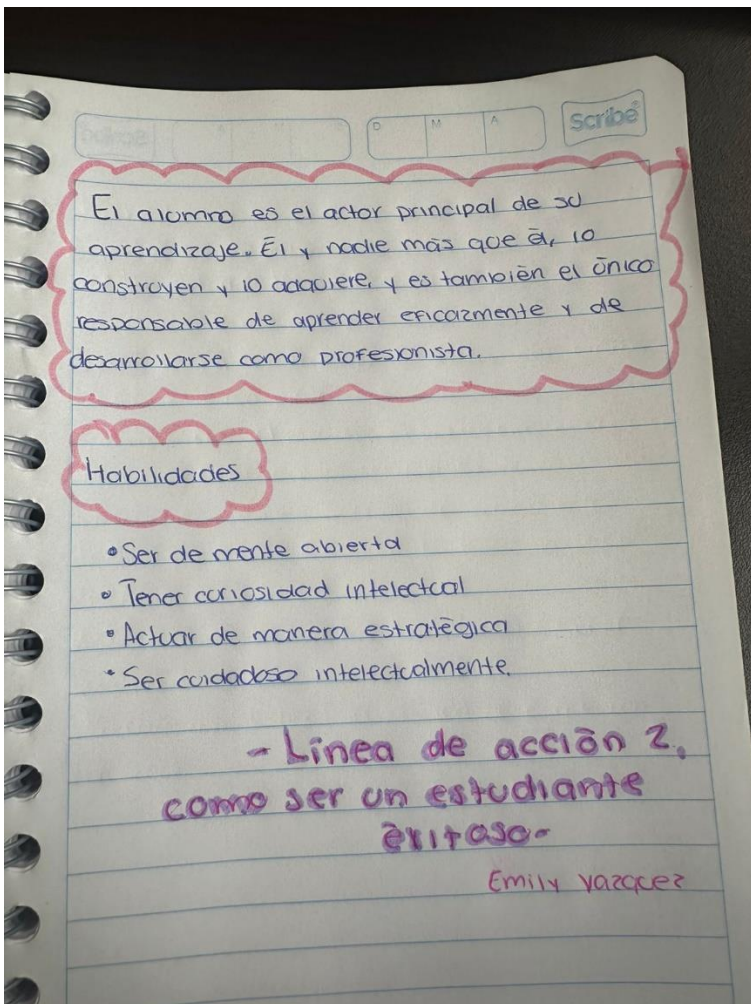 Scribe
D M A
El alumno es el actor principal de su
aprendizaje. Él y nadie más que él, lo
construyen y lo adquiere, y es también el único
responsable de aprender eficazmente y de
desarrollarse como profesionista.
Habilidades
• Ser de mente abierta
• Tener curiosidad intelectual
• Actuar de manera estratégica
• Ser cuidadoso intelectualmente.
- Linea de acción 2,
como ser un estudiante
éxitoso-
Emily Vazquez